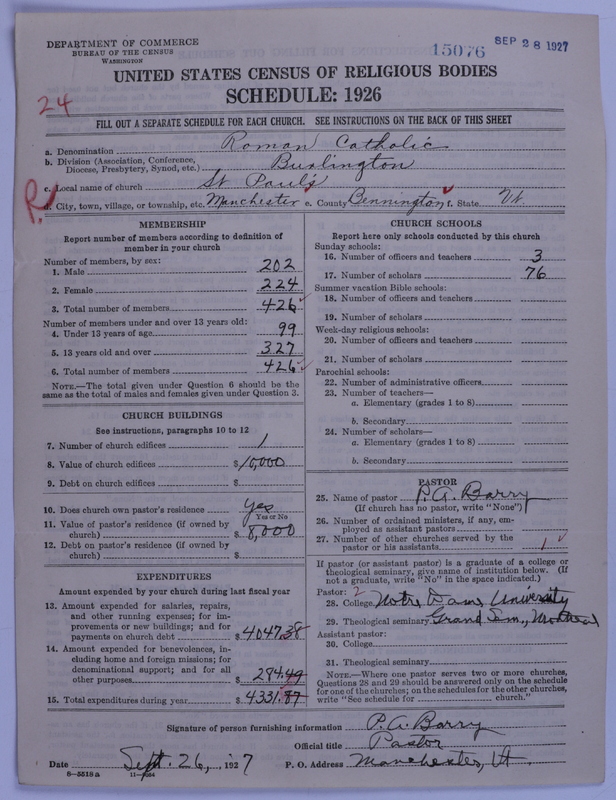 DEPARTMENT OF COMMERCE
BUREAU OF THE CENSUS
WASHINGTON
15076
SEP 28 1927
UNITED STATES CENSUS OF RELIGIOUS BODIES
SCHEDULE: 1926
24
FILL OUT A SEPARATE SCHEDULE FOR EACH CHURCH. SEE INSTRUCTIONS ON THE BACK OF THIS SHEET
a. Denomination Roman Catholic
b. Division (Association, Conference, Diocese, Presbytery, Synod, etc.) Burlington
c. Local name of church St Paul's
R.
d. City, town, village, or township, etc. Manchester e. County Bennington f. State Vt.
MEMBERSHIP
Report number of members according to definition of
member in your church
Number of members, by sex:
1. Male 202
2. Female 224
3. Total number of members 426
Number of members under and over 13 years old:
4. Under 13 years of age 99
5. 13 years old and over 327
6. Total number of members 426
NOTE.—The total given under Question 6 should be the
same as the total of males and females given under Question 3.
CHURCH BUILDINGS
See instructions, paragraphs 10 to 12
7. Number of church edifices 1
8. Value of church edifices $10,000
9. Debt on church edifices $
10. Does church own pastor's residence yes
Yes or No
11. Value of pastor's residence (if owned by
church) $ 8,000
12. Debt on pastor's residence (if owned by
church) $
EXPENDITURES
Amount expended by your church during last fiscal year
13. Amount expended for salaries, repairs,
and other running expenses; for im-
provements or new buildings; and for
payments on church debt $ 4047.38
14. Amount expended for benevolences, in-
cluding home and foreign missions; for
denominational support; and for all
other purposes $ 284.49
15. Total expenditures during year $ 4331.87
CHURCH SCHOOLS
Report here only schools conducted by this church
Sunday schools:
16. Number of officers and teachers 3
17. Number of scholars 76
Summer vacation Bible schools:
18. Number of officers and teachers
19. Number of scholars
Week-day religious schools:
20. Number of officers and teachers
21. Number of scholars
Parochial schools:
22. Number of administrative officers
23. Number of teachers—
a. Elementary (grades 1 to 8)
b. Secondary
24. Number of scholars—
a. Elementary (grades 1 to 8)
b. Secondary
PASTOR
25. Name of pastor P.A. Barry
(If church has no pastor, write "None")
26. Number of ordained ministers, if any, em-
ployed as assistant pastors
27. Number of other churches served by the
pastor or his assistants 1
If pastor (or assistant pastor) is a graduate of a college or
theological seminary, give name of institution below. (If
not a graduate, write "No" in the space indicated.)
Pastor: 2
28. College Notre Dame University
29. Theological seminary Grand Sem., Montreal
Assistant pastor:
30. College
31. Theological seminary
NOTE.—Where one pastor serves two or more churches,
Questions 28 and 29 should be answered only on the schedule
for one of the churches; on the schedules for the other churches,
write "See schedule for church."
Signature of person furnishing information P.A. Barry
Official title Pastor
Date Sept. 26, 1927 P. O. Address Manchester, Vt.
8—5518a 11—9054